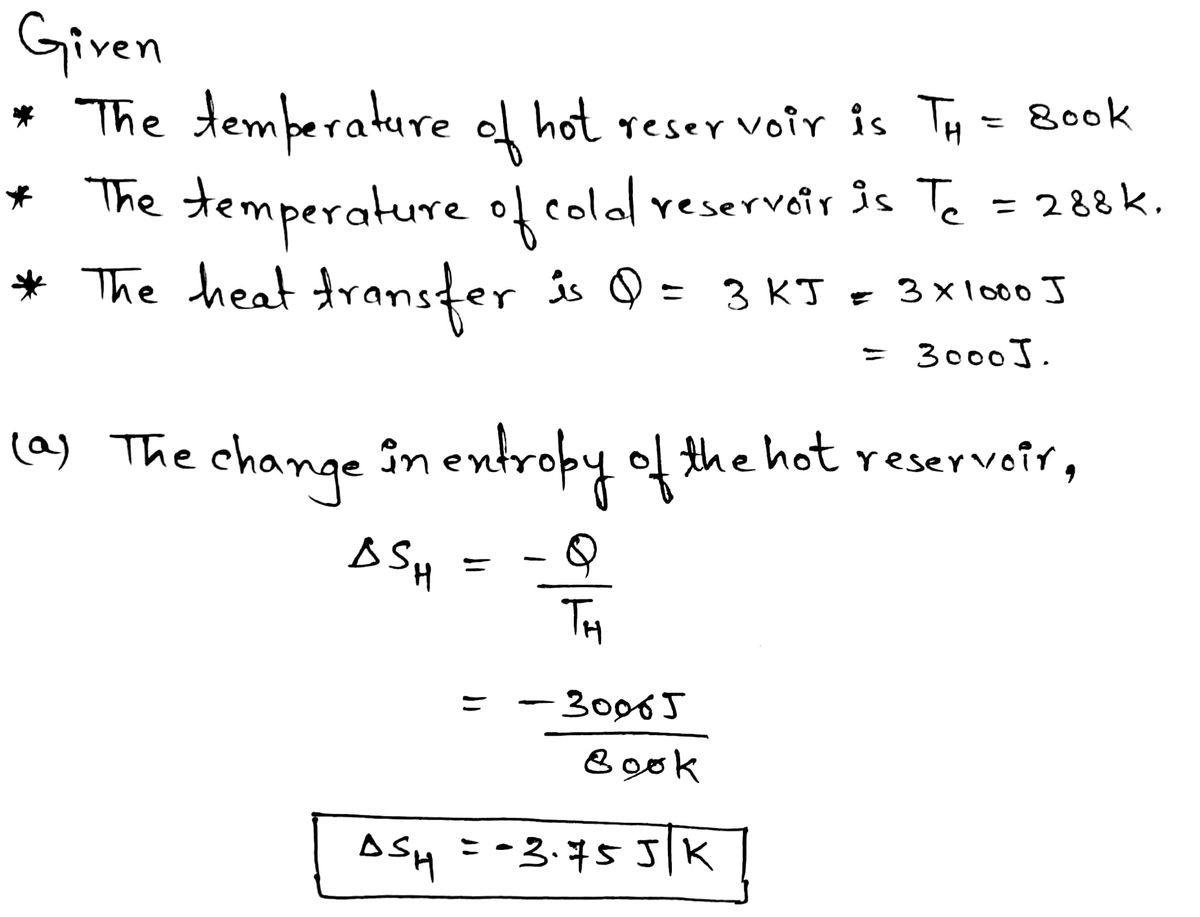 Given
* The temperature of hot reservoir is T_H = 800k
* The temperature of cold reservoir is T_c = 288k.
* The heat transfer is Q = 3 KJ = 3 × 1000 J
= 3000 J.
(a) The change in entropy of the hot reservoir,
ΔS_H = - Q
T_H
= - 3000 J
800k
ΔS_H = -3.75 J|K